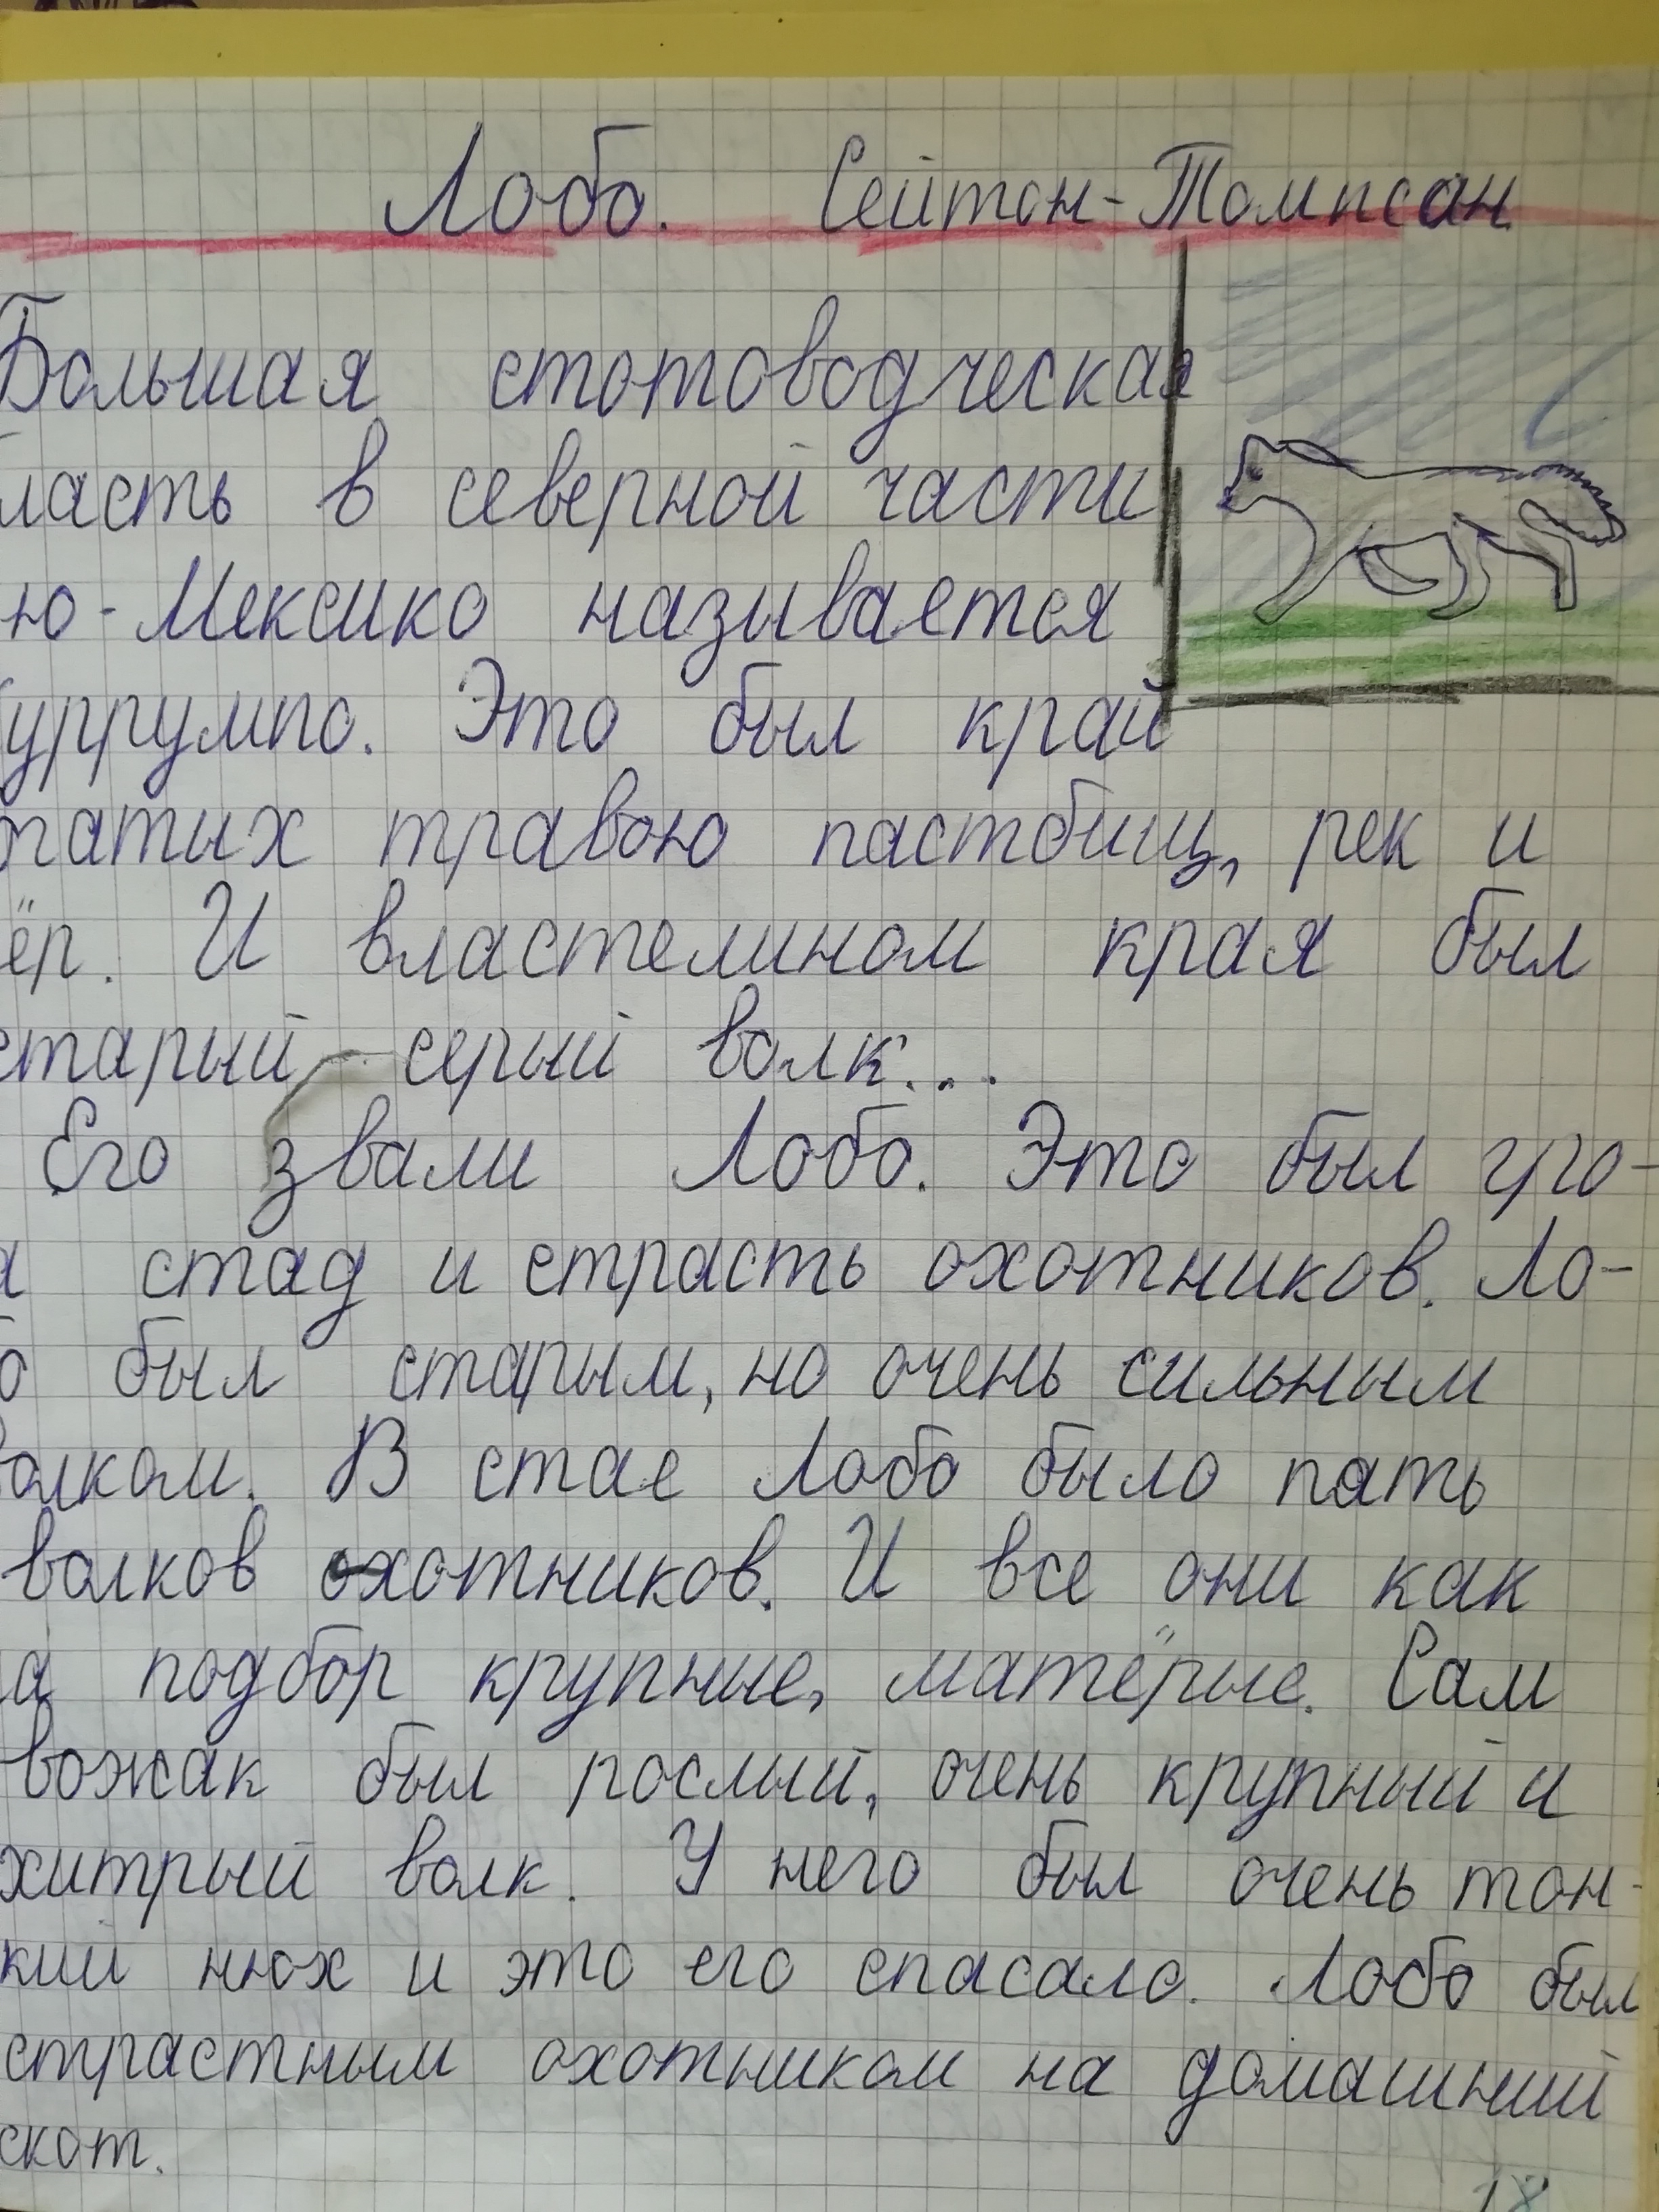 Лобо. Сейтон-Томпсон
Большая стотоводческая
ласть в северной части
ю-Мексико называется
уррумпо. Это был край
гатых травою пастбищ, рек и
ёр. И властелином края был
старый серый волк...
Его звали Лобо. Это был гро-
а стад и страсть охотников. Ло-
о был старым, но очень сильным
олком. В стае Лобо было пять
волков охотников. И все они как
а подбор крупные, матёрые. Сам
вожак был рослый, очень крупный и
хитрый волк. У него был очень тон-
кий нюх и это его спасало. Лобо был
страстным охотником на домашний
скот.